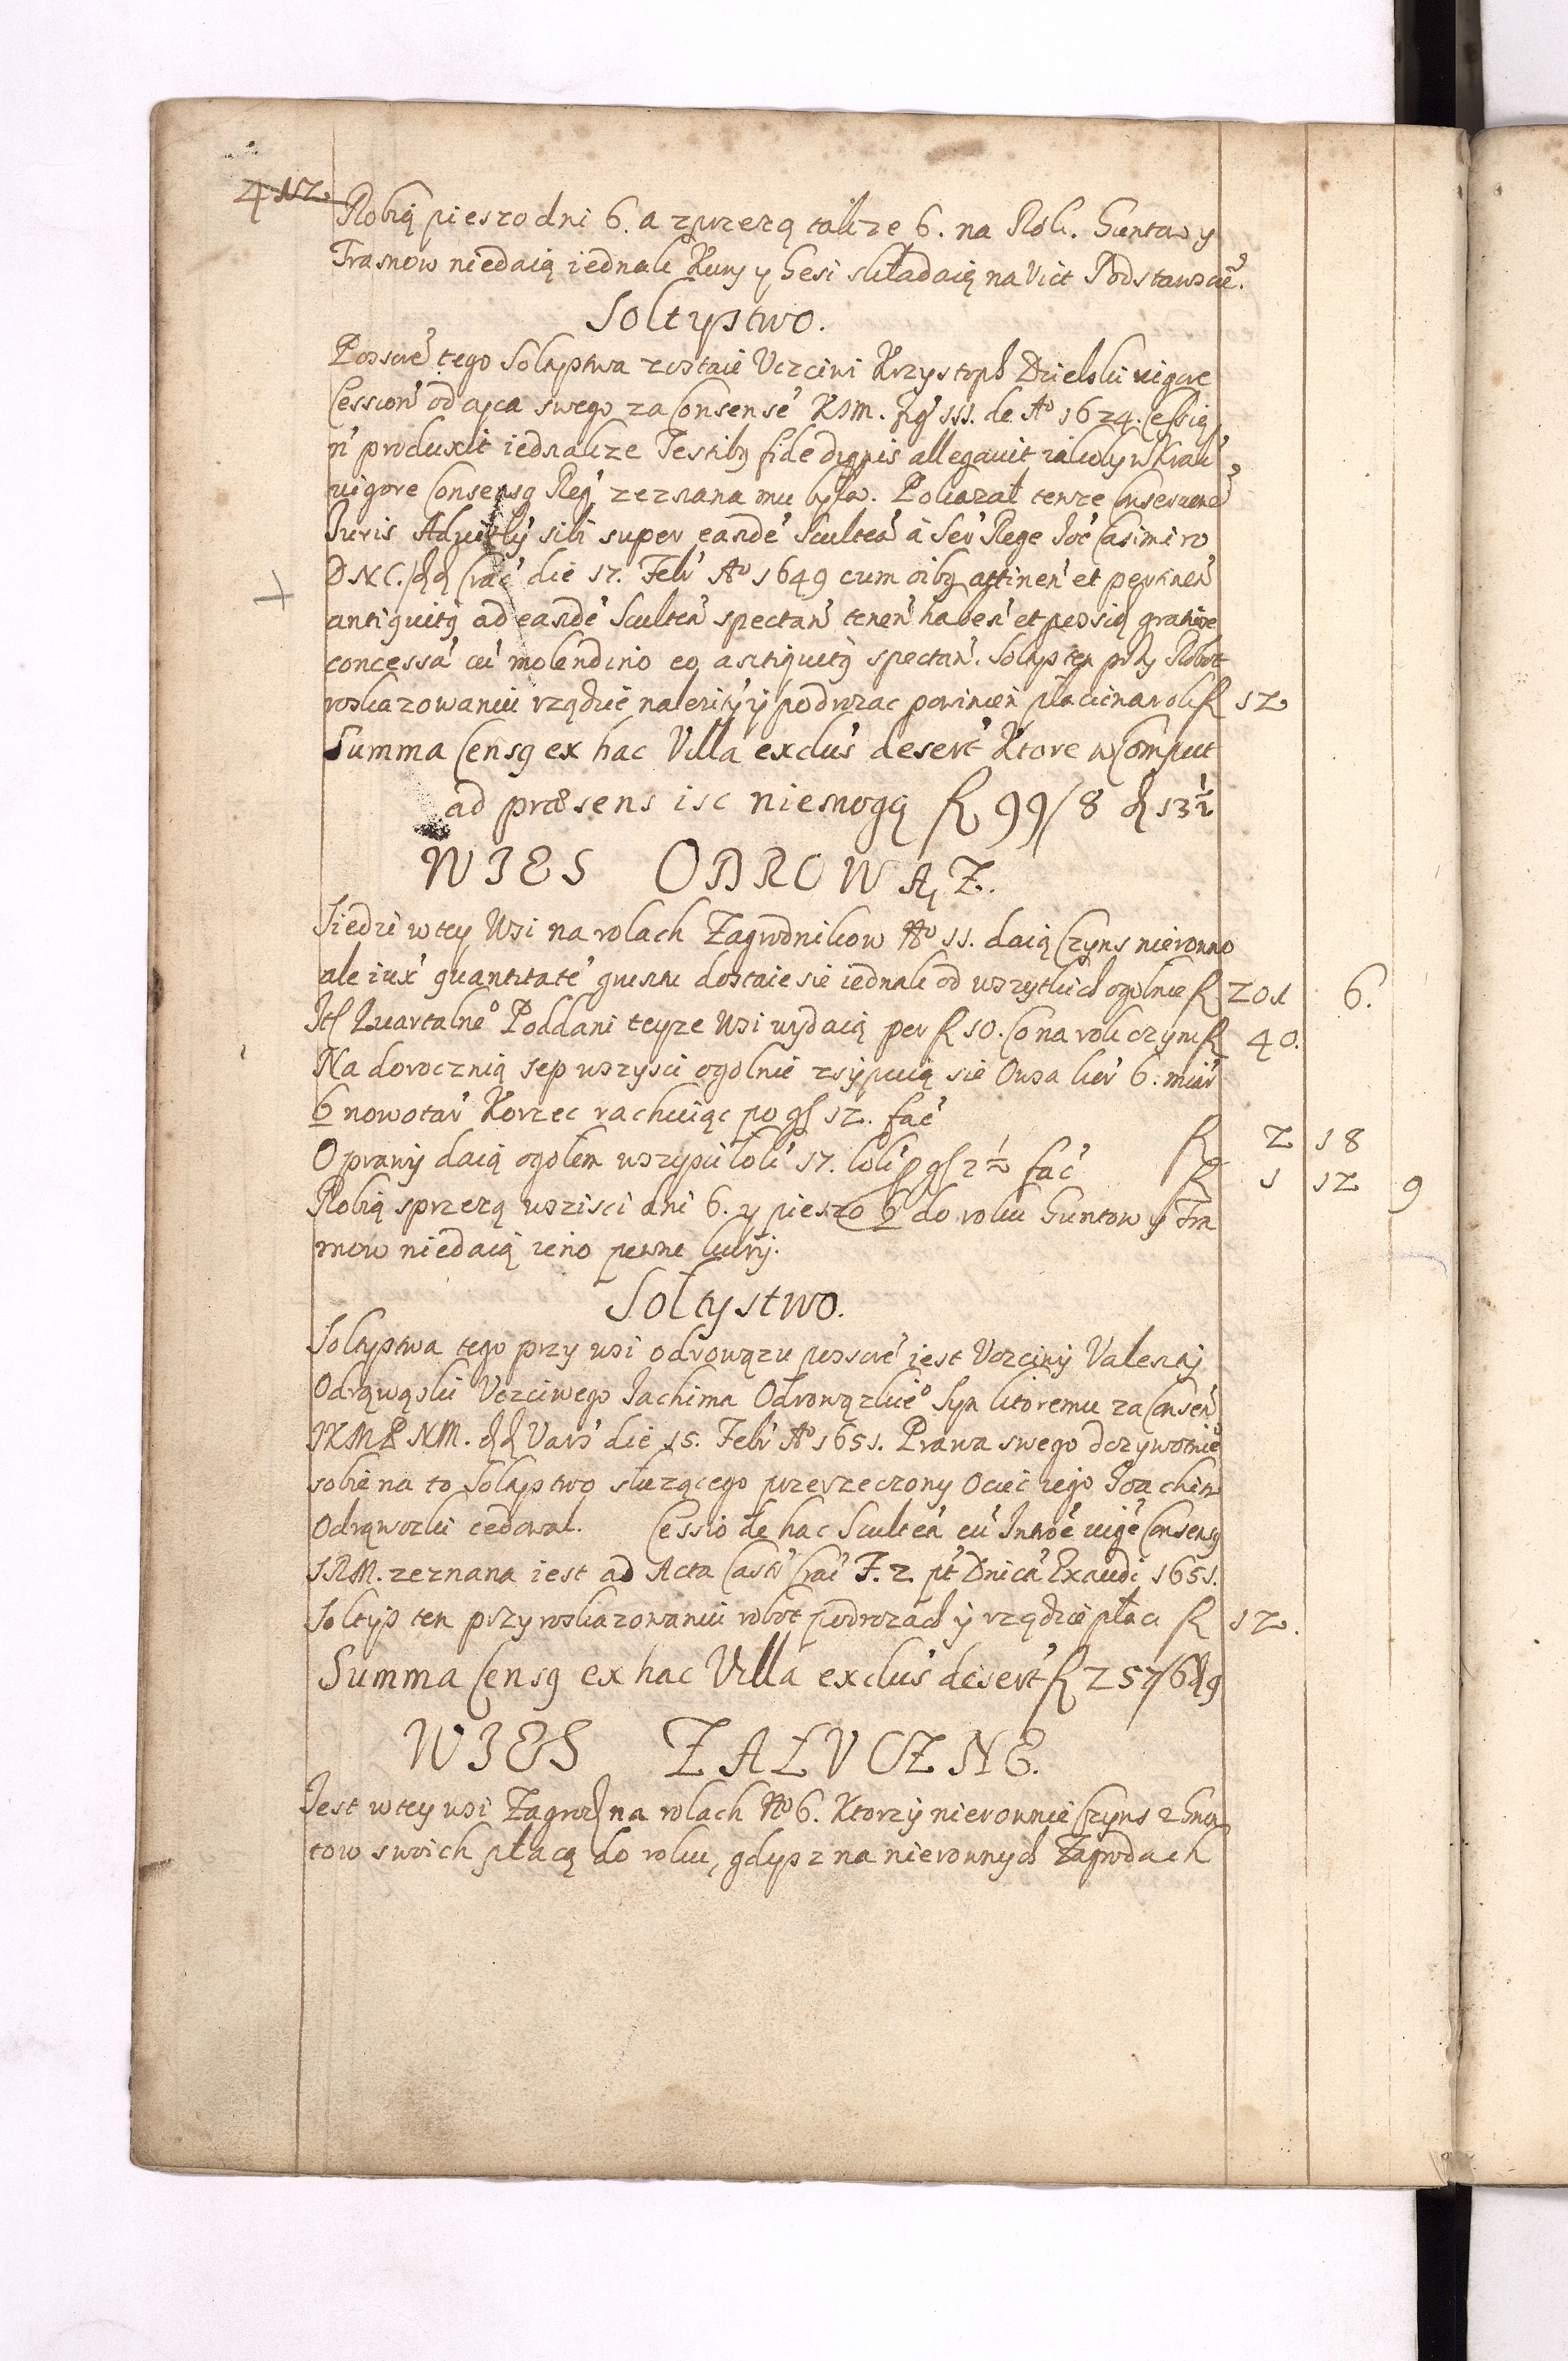 412
Robią pieszo dni 6. a zprzezą takze 6. na Rok. Guntow y
Tramow niedaią iednak Kury y Gesi składaią na Vict Podstaroscie͂.
Sołtystwo.
Possore͂ tego Soltystwa zostaie Vczciwi Krzysztoph Dzielski vigore
Cession͂ od ojca swego za Consense͂ KJM. Zyg͂ III. de Ao 1624. Cessią
n͂ produxit iednakze Testibus fide dignis allegavit iakoby w Krak͂
vigore Consensus Reg͂ zeznana mu była. Pokazał tenze Conservane͂
Iuris Aduitly͂ sibi super eande͂ Scultea͂ à Ser͂ Rege Ioe͂ Casimiro
D N C. dd Crac͂ die 17. Febr͂ Ao 1649 cum oibus attinen͂ et pertinen͂
antiquitus ad eande͂ Sculten͂ spectan͂ tenen͂ haben͂ et possid gratiose
concessa͂ cu͂ molendino eo antiquitus spectan͂. Soltys ten przy Robot
roskazowaniu rządzie nalezity y podrozac powinien płacic na rok fl 12
Summa Census ex hac Villa exclus͂ desert͂ Ktore w Comput
ad præsens isc niemogą fl 99/8 d 13½
WIES ODROWĄZ.
Siedzi w tey Wsi na rolach Zagrodnikow No 11. daią Czyns nierowno
ale iux͂ quantitate͂ gruntu dostaie sie iednak od wszytkich ogolnie fl 201 6.
It͂ Kwartalneo Poddani teyze Wsi wydaią per fl 10. Co na rok czyni fl 40.
Na dorocznią sep wszysci ogolnie zsypuią sie Owsa kor͂ 6. miar͂
6 nowotar͂ Korzec rachuiąc po gſ 12. fac͂ fl 2 18
Oprawy daią ogołem wszysci łok͂ 17. łok͂ p gſ 2½ fac͂ fl 1 12 9
Robią sprzezą wszisci dni 6. y pieszo 6 do roku Guntow y Tra
mow niedaią ieno pewne kury.
Sołtystwo.
Soltystwa tego przy wsi Odrowązu possore͂ iest Vczciwy Valenty
Odrąwąski Vczciwego Jachima Odrowązkieo Syn ktoremu za Consen͂
JKM P N M. dd Vars͂ die 15. Febr͂ Ao 1651. Prawa swego dozywotnieo
sobie na to Soltystwo słuzącego przerzeczony Ociec iego Joachim
Odrąwozki cedował. Cessio de hac Scultea͂ cu͂ Intro͂e vige͂ Consensus
SRM. zeznana iest ad Acta Castr͂ Crac͂ F. 2. pt͂ Dnica͂ Exaudi 1651.
Soltys ten przy roskazowaniu robot podrozach y rządzie płaci fl 12.
Summa Census ex hac Villa exclus͂ desert͂ fl 257/6 d 9
WIES ZAŁVCZNE.
Jest w tey wsi Zagrod na rolach No 6. Ktorzy nierownie Czyns z Grun
tow swoich płacą do roku, gdysz na nierownych Zagrodach